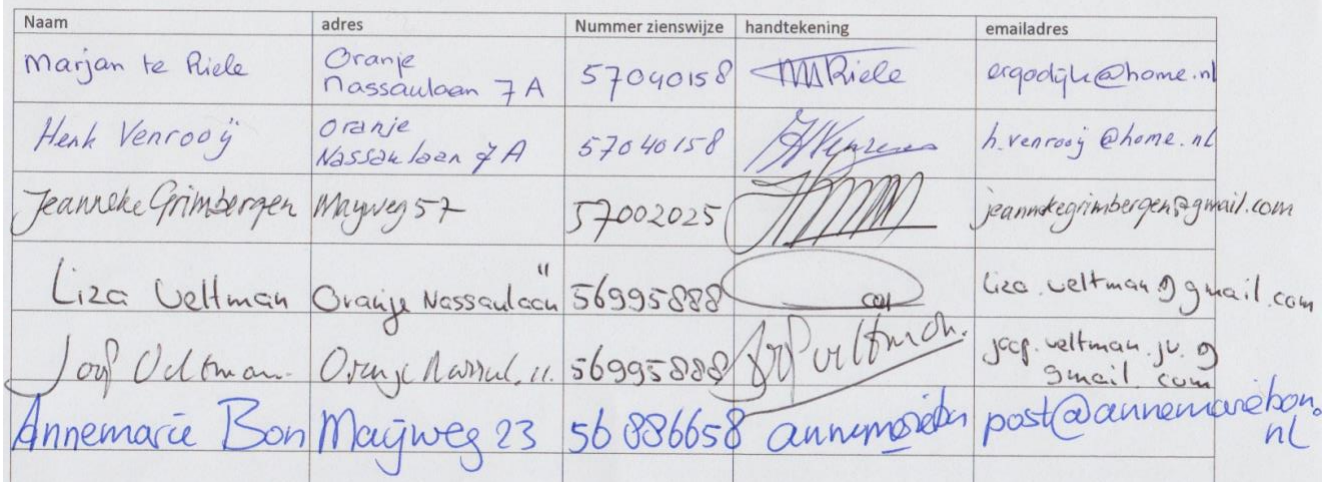 Naam adres Nummer zienswijze handtekening emailadres
Marjan te Riele Oranje Nassaulaan 7A 57040158 MRiele ergodijk@home.nl
Henk Venrooij Oranje Nassaulaan 7A 57040158 h.venrooij@home.nl
Jeanneke Grimbergen Mayweg 57 57002025 jeannekegrimbergen@gmail.com
Liza Veltman Oranje Nassaulaan 11 56995888 liza.veltman@gmail.com
Veltman Oranje Nassaul. 11. 56995888 Veltman. jaap.veltman.jv.@gmail.com
Annemarie Bon Mayweg 23 56886658 annemariebon post@annemariebon.nl